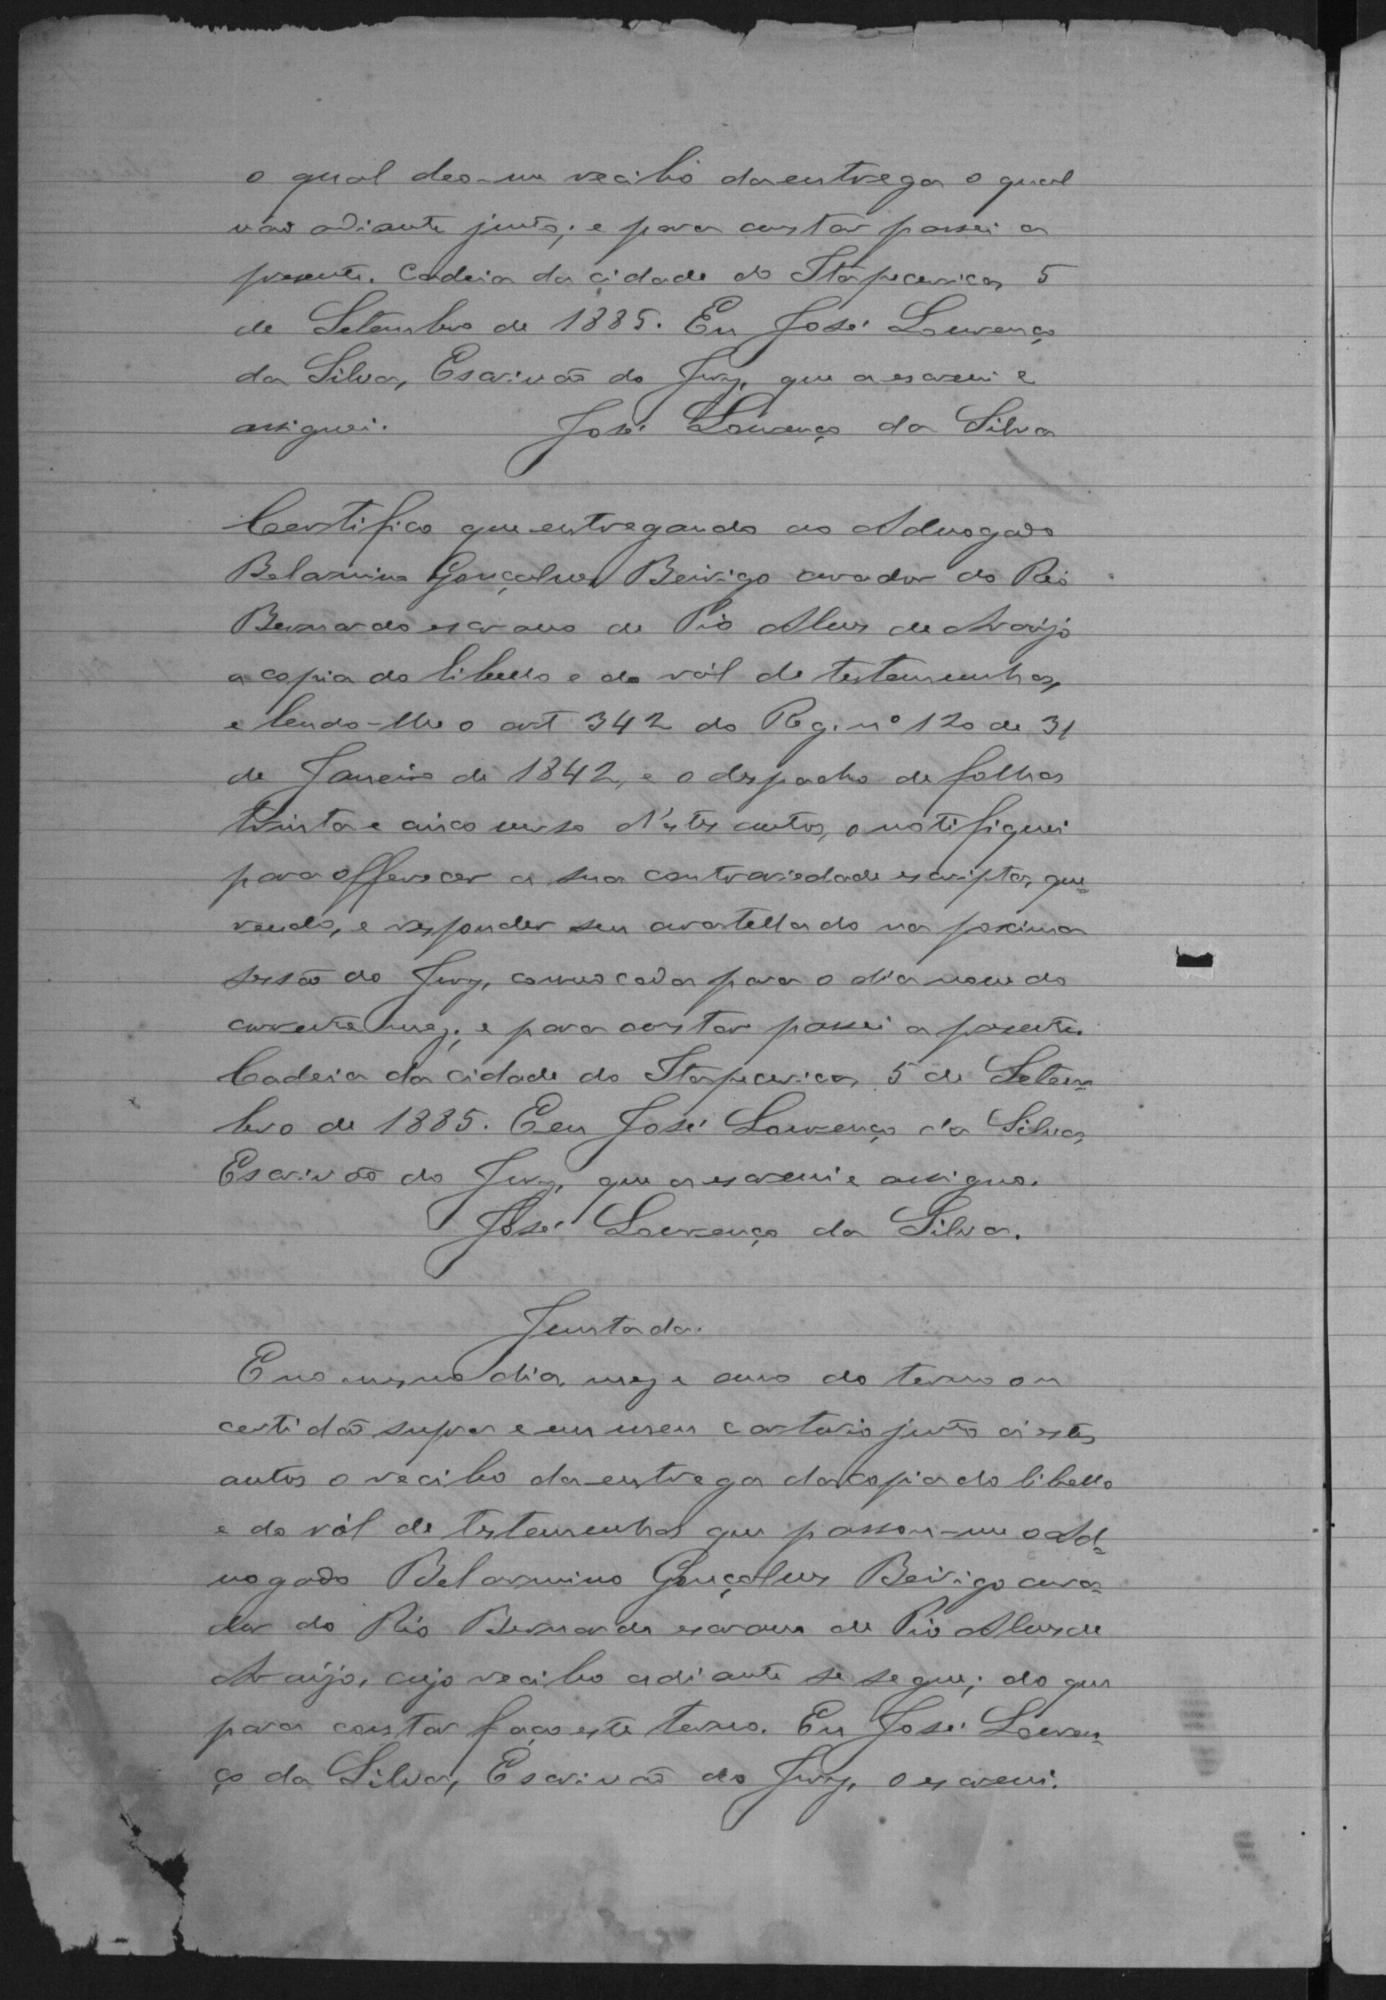 o qual deo-me recibo da entrega o qual
vão adiante junto; e para constar passei a
presente. Cadeia da cidade do Itapecerica, 5
de Setembro de 1885. Eu José Lourenço
da Silva, Escrivão do Jury, que a escrevi e
assignei. José Lourenço da Silva
Certifico que entregando ao Advogado
Belarmino Gonçalves Beirigo curador do Réo
Bernardo escravo de Pio Alves de Araújo
a copia do libello e do ról de testemunhas,
e lendo-lhe o art 342 do Reg. nº 120 de 31
de Janeiro de 1842, e o despacho de folhas
trinta e cinco verso d'estes autos, o notifiquei
para offerecer a sua contrariedade escripta, que-
rendo, e responder seu curatellado na proxima
sessão do Jury, convocada para o dia nove do
corrente mez; e para constar passei a presente.
Cadeia da cidade do Itapecerica, 5 de Setem-
bro de 1885. E eu José Lourenço da Silva,
Escrivão do Jury, que a escrevi e assigno.
José Lourenço da Silva.
Juntada.
E no mesmo dia, mez e anno do termo ou
certidão supra e em meu cartorio junto a estes
autos o recibo da entrega da copia do libello
e do ról de testemunhas que passou-me o Ad-
vogado Belarmino Gonçalves Beirigo cura-
dor do Réo Bernardo escravo de Pio Alves de
Araújo, cujo recibo adiante se segue; do que
para constar faço este termo. Eu José Louren-
ço da Silva, Escrivão do Jury, o escrevi.